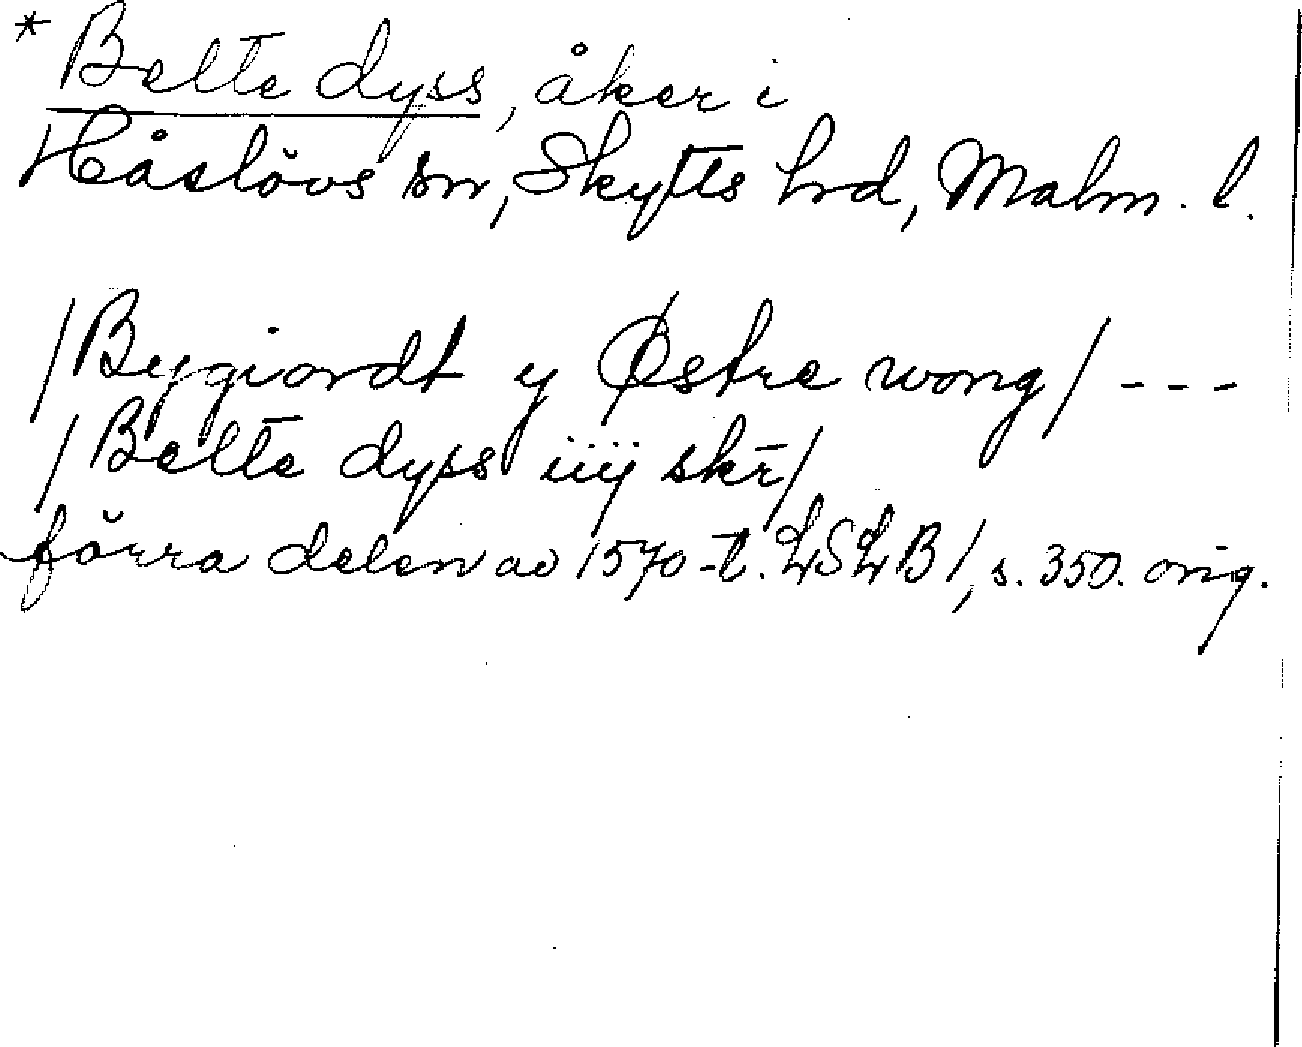 * Belte dyss, åker i
Håslövs sn, Skytts hrd, Malm. l.
/Bygiordt y Østre wong/ ---
/Belte dyss iiij skr̄/
förra delen av 1570-t. LSLB 1, s. 350. orig.